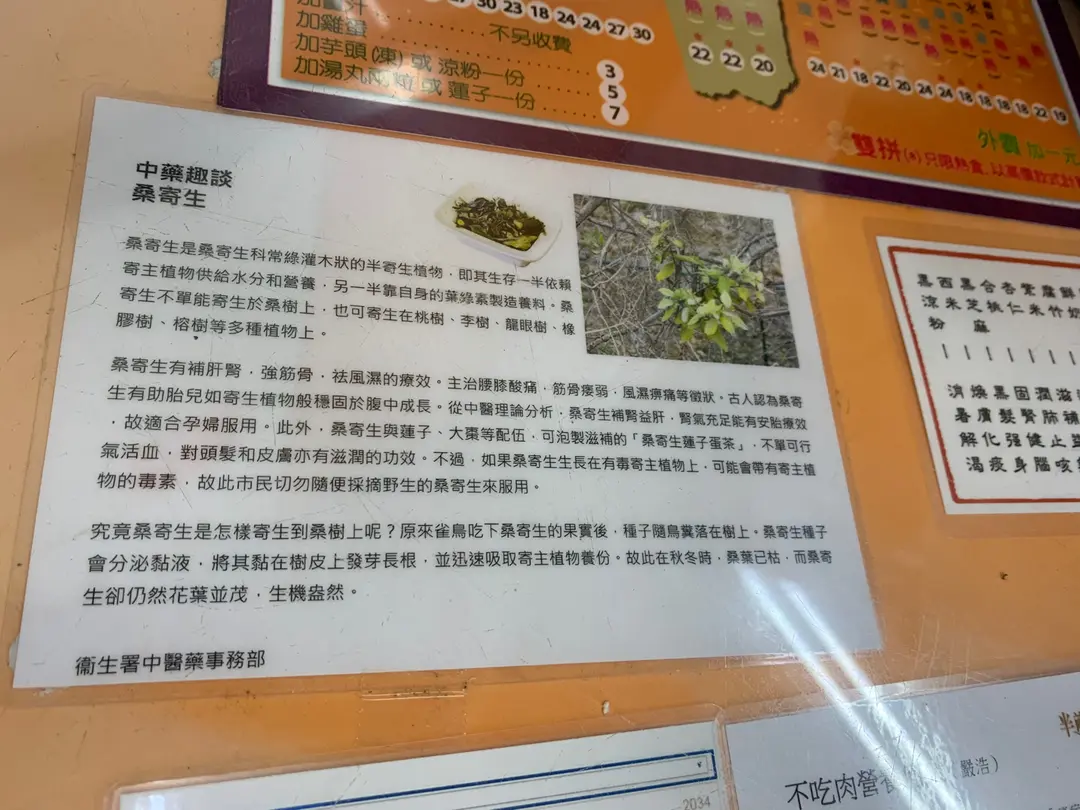 加雞蛋 不另收費
加芋頭(凍) 或 涼粉一份 3
5
加湯丸兩粒 或 蓮子一份 7
30 23 18 24 24 27 30
22 22 20
24 21 18 22 20 24 24 18 18 18 18 22 19
外賣 加一元
雙拼(●)只限熱食,以高價款式計
中藥趣談
桑寄生
桑寄生是桑寄生科常綠灌木狀的半寄生植物,即其生存一半依賴
寄主植物供給水分和營養,另一半靠自身的葉綠素製造養料。桑
寄生不單能寄生於桑樹上,也可寄生在桃樹、李樹、龍眼樹、橡
膠樹、榕樹等多種植物上。
桑寄生有補肝腎,強筋骨,祛風濕的療效。主治腰膝酸痛,筋骨痿弱,風濕痹痛等徵狀。古人認為桑寄
生有助胎兒如寄生植物般穩固於腹中成長。從中醫理論分析,桑寄生補腎益肝,腎氣充足能有安胎療效
,故適合孕婦服用。此外,桑寄生與蓮子、大棗等配伍,可泡製滋補的「桑寄生蓮子蛋茶」,不單可行
氣活血,對頭髮和皮膚亦有滋潤的功效。不過,如果桑寄生生長在有毒寄主植物上,可能會帶有寄主植
物的毒素,故此市民切勿隨便採摘野生的桑寄生來服用。
究竟桑寄生是怎樣寄生到桑樹上呢?原來雀鳥吃下桑寄生的果實後,種子隨鳥糞落在樹上。桑寄生種子
會分泌黏液,將其黏在樹皮上發芽長根,並迅速吸取寄主植物養份。故此在秋冬時,桑葉已枯,而桑寄
生卻仍然花葉並茂,生機盎然。
衞生署中醫藥事務部
涼粉
西米
黑芝麻
合桃
杏仁
紫米
腐竹
鮮奶
消暑解渴
煥膚化痰
黑髮强身
固腎健腦
潤肺止咳
2034
不吃肉營養
嚴浩)